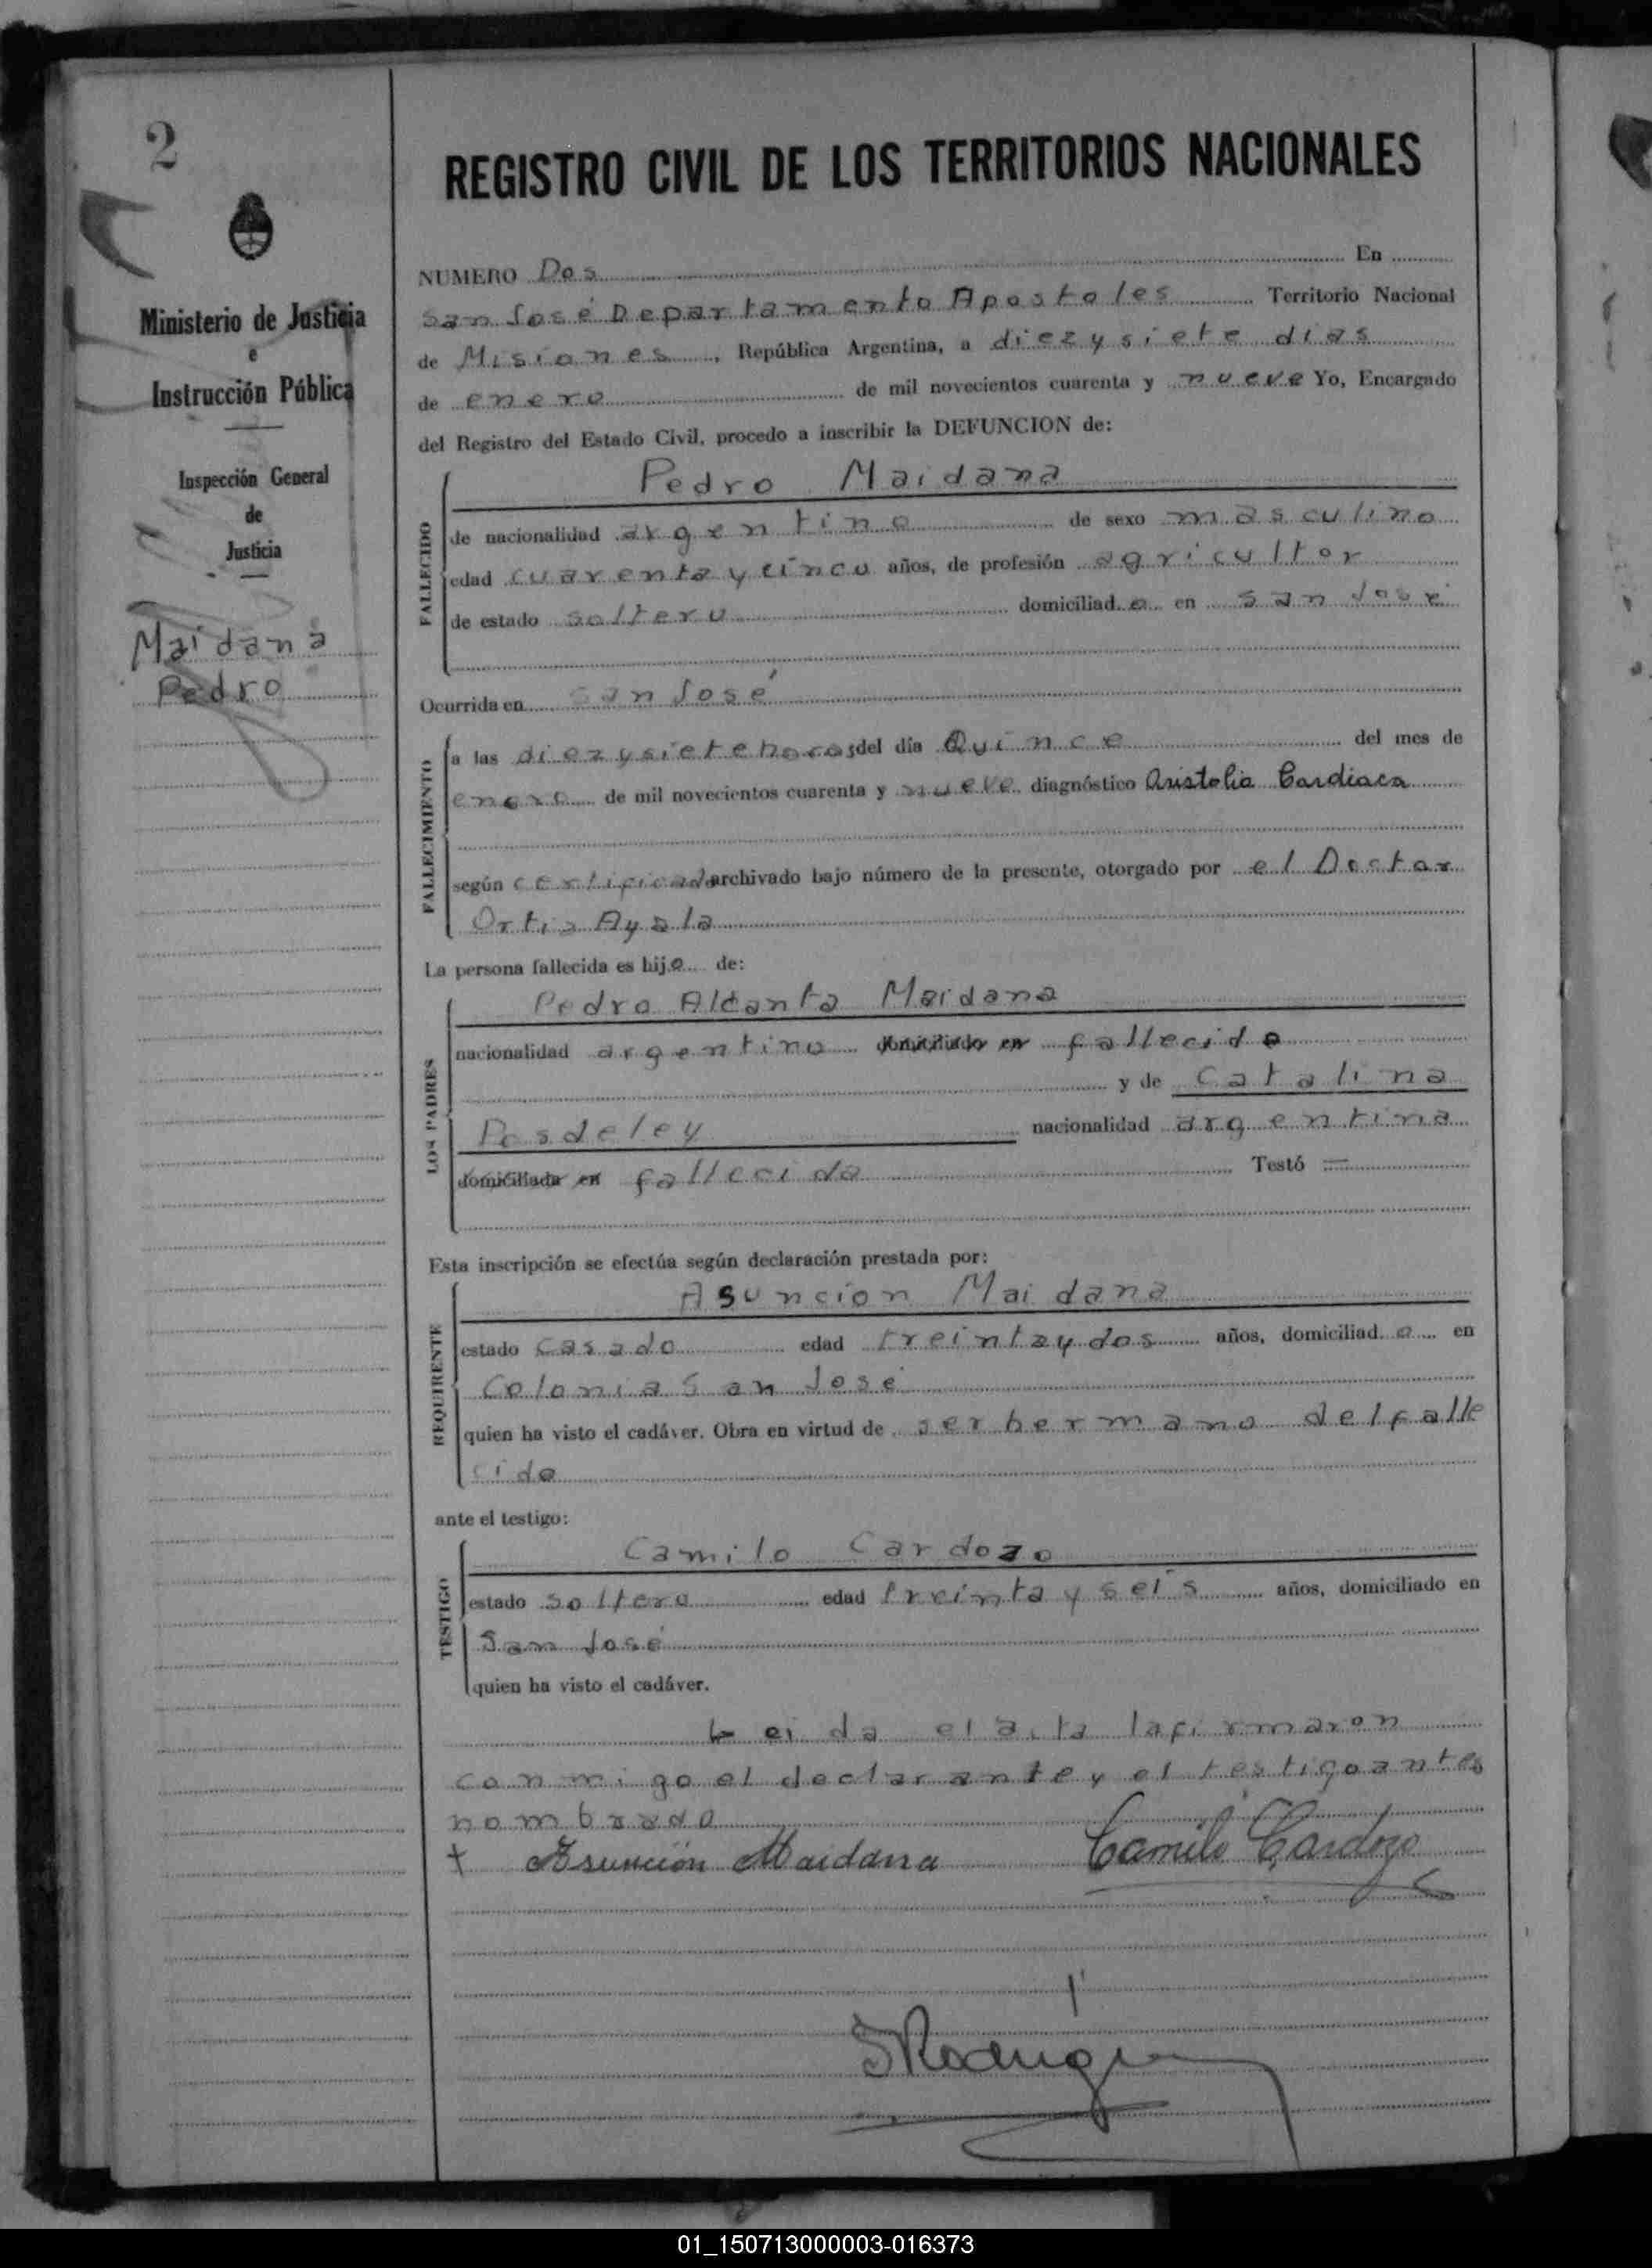 2
Ministerio de Justicia
e
Instrucción Pública
Inspección General
de
Justicia
Maidana
Pedro
REGISTRO CIVIL DE LOS TERRITORIOS NACIONALES
NUMERO Dos En
San José Departamento Apostoles Territorio Nacional
de Misiones, República Argentina, a diez y siete dias
de enero de mil novecientos cuarenta y nueve Yo, Encargado
del Registro del Estado Civil, procedo a inscribir la DEFUNCION de:
FALLECIDO
Pedro Maidana
de nacionalidad argentino de sexo masculino
edad cuarenta y cinco años, de profesión agricultor
de estado soltero domiciliad o en San José
Ocurrida en San José
FALLECIMIENTO
a las diez y siete horas del día Quince del mes de
enero de mil novecientos cuarenta y nueve diagnóstico Aristolia Cardiaca
según certificado archivado bajo número de la presente, otorgado por el Doctor
Ortiz Ayala
La persona fallecida es hijo de:
LOS PADRES
Pedro Alcanta Maidana
nacionalidad argentino domiciliado en fallecido
y de Catalina
Posdeley nacionalidad argentina
domiciliada en fallecida Testó =
Esta inscripción se efectúa según declaración prestada por:
REQUIRENTE
Asuncion Maidana
estado casado edad treinta y dos años, domiciliad o en
Colonia San José
quien ha visto el cadáver. Obra en virtud de ser hermano del falle
cido
ante el testigo:
TESTIGO
Camilo Cardozo
estado soltero edad treinta y seis años, domiciliado en
San José
quien ha visto el cadáver.
Leida el acta la firmaron
conmigo el declarante y el testigo antes
nombrado
+ Asunción Maidana Camilo Cardozo
01_150713000003-016373